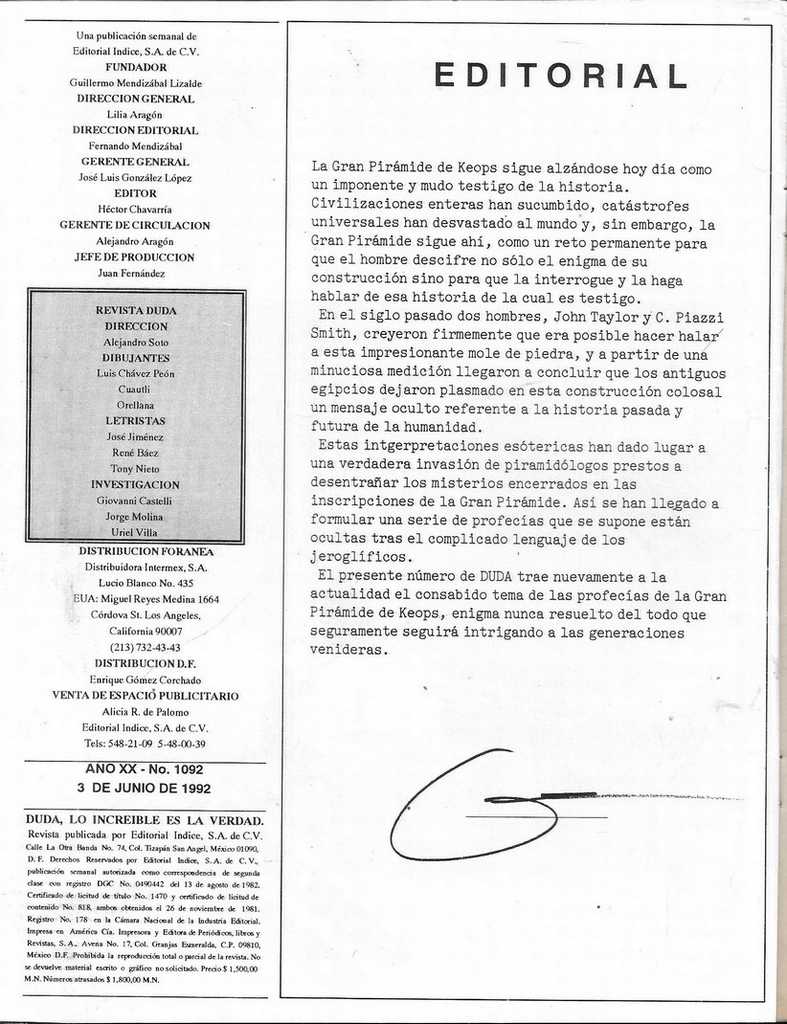 Una publicación semanal de
Editorial Indice, S.A. de C.V.
FUNDADOR
Guillermo Mendizábal Lizalde
DIRECCION GENERAL
Lilia Aragón
DIRECCION EDITORIAL
Fernando Mendizábal
GERENTE GENERAL
José Luis González López
EDITOR
Héctor Chavarría
GERENTE DE CIRCULACION
Alejandro Aragón
JEFE DE PRODUCCION
Juan Fernández
REVISTA DUDA
DIRECCION
Alejandro Soto
DIBUJANTES
Luis Chávez Peón
Cuautli
Orellana
LETRISTAS
José Jiménez
René Báez
Tony Nieto
INVESTIGACION
Giovanni Castelli
Jorge Molina
Uriel Villa
DISTRIBUCION FORANEA
Distribuidora Intermex, S.A.
Lucio Blanco No. 435
EUA: Miguel Reyes Medina 1664
Córdova St. Los Angeles,
California 90007
(213) 732-43-43
DISTRIBUCION D.F.
Enrique Gómez Corchado
VENTA DE ESPACIO PUBLICITARIO
Alicia R. de Palomo
Editorial Indice, S.A. de C.V.
Tels: 548-21-09 5-48-00-39
ANO XX - No. 1092
3 DE JUNIO DE 1992
DUDA, LO INCREIBLE ES LA VERDAD.
Revista publicada por Editorial Indice, S.A. de C.V.
Calle La Otra Banda No. 74, Col. Tizapán San Angel, México 01090,
D. F. Derechos Reservados por Editorial Indice, S. A. de C. V.,
publicación semanal autorizada como correspondencia de segunda
clase con registro DGC No. 0490442 del 13 de agosto de 1982.
Certificado de licitud de título No. 1470 y certificado de licitud de
contenido No. 818, ambos obtenidos el 26 de noviembre de 1981.
Registro No. 178 en la Cámara Nacional de la Industria Editorial.
Impresa en América Cía. Impresora y Editora de Periódicos, libros y
Revistas, S. A., Avena No. 17, Col. Granjas Esmeralda, C.P. 09810,
México D.F. Prohibida la reproducción total o parcial de la revista. No
se devuelve material escrito o gráfico no solicitado. Precio $ 1,500,00
M.N. Números atrasados $ 1,800,00 M.N.
EDITORIAL
La Gran Pirámide de Keops sigue alzándose hoy día como
un imponente y mudo testigo de la historia.
Civilizaciones enteras han sucumbido, catástrofes
universales han desvastado al mundo y, sin embargo, la
Gran Pirámide sigue ahí, como un reto permanente para
que el hombre descifre no sólo el enigma de su
construcción sino para que la interrogue y la haga
hablar de esa historia de la cual es testigo.
En el siglo pasado dos hombres, John Taylor y C. Piazzi
Smith, creyeron firmemente que era posible hacer halar
a esta impresionante mole de piedra, y a partir de una
minuciosa medición llegaron a concluir que los antiguos
egipcios dejaron plasmado en esta construcción colosal
un mensaje oculto referente a la historia pasada y
futura de la humanidad.
Estas intgerpretaciones esótericas han dado lugar a
una verdadera invasión de piramidólogos prestos a
desentrañar los misterios encerrados en las
inscripciones de la Gran Pirámide. Así se han llegado a
formular una serie de profecías que se supone están
ocultas tras el complicado lenguaje de los
jeroglíficos.
El presente número de DUDA trae nuevamente a la
actualidad el consabido tema de las profecías de la Gran
Pirámide de Keops, enigma nunca resuelto del todo que
seguramente seguirá intrigando a las generaciones
venideras.